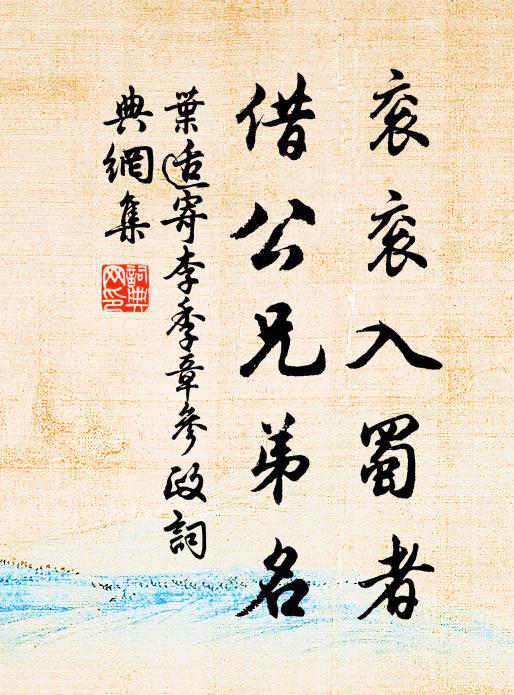 衮衮入蜀者
借公兄弟名
葉适寄李季章參政詞
典網集
詞典
网印